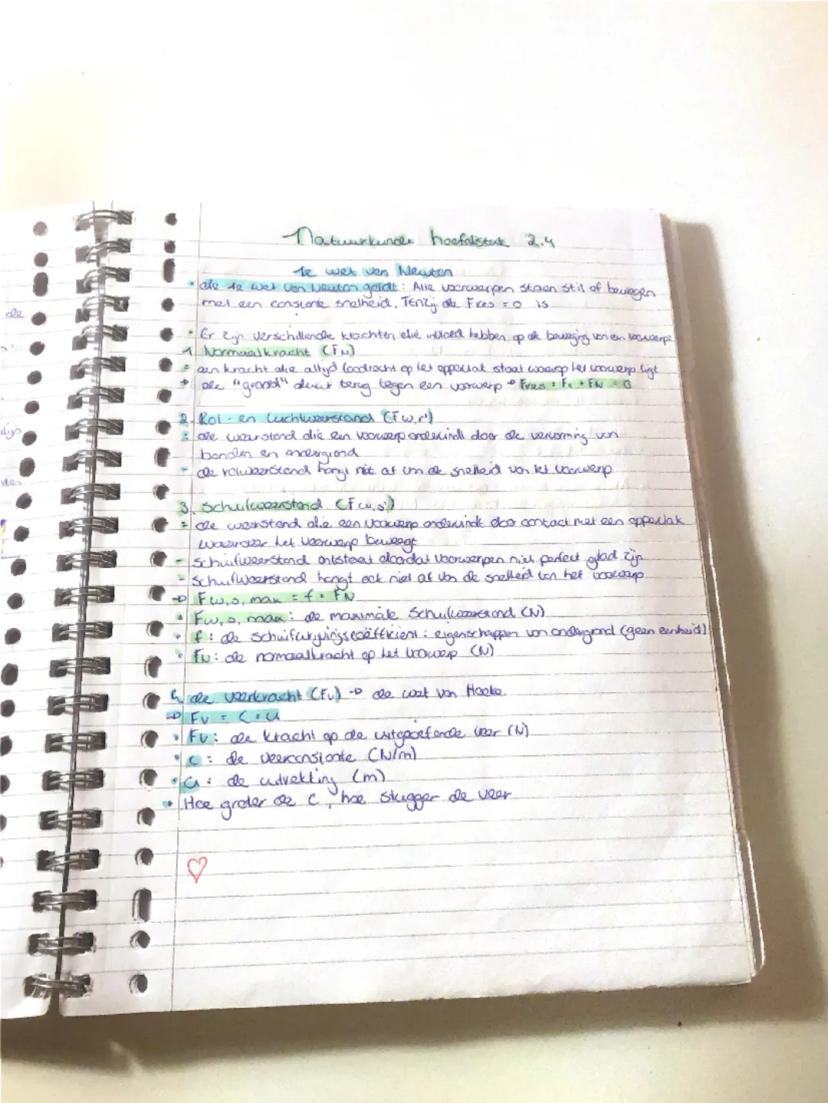 Natuurkunde hoofdstuk 2.4
1e wet van Newton
• de 1e wet van Newton geldt: Alle voorwerpen staan stil of bewegen
met een constante snelheid, Tenzij de Fres = 0 is
• Er zijn verschillende krachten die invloed hebben op de beweging van een voorwerp
1. Normaalkracht (FN)
= een kracht die altijd loodrecht op het oppervlak staat waarop het voorwerp ligt
→ de "grond" duwt terug tegen een voorwerp → Fres = Fz + FN = 0
2. Rol- en luchtweerstand (Fw,r)
= de weerstand die een voorwerp ondervindt door de vervorming van
banden en ondergrond
- de rolweerstand hangt niet af van de snelheid van het voorwerp
3. Schuifweerstand (Fw,s)
= de weerstand die een voorwerp ondervindt door contact met een oppervlak
waarover het voorwerp beweegt
- Schuifweerstand ontstaat doordat voorwerpen niet perfect glad zijn
- Schuifweerstand hangt ook niet af van de snelheid van het voorwerp
→ Fw,s,max = f · FN
• Fw,s,max: de maximale Schuifweerstand (N)
• f: de schuifwrijvingscoëfficiënt: eigenschappen van ondergrond (geen eenheid)
• FN: de normaalkracht op het voorwerp (N)
4. de veerkracht (Fv) → de wet van Hooke
→ Fv = C · u
• Fv: de kracht op de uitgeoefende veer (N)
• C: de veerconstante (N/m)
• u: de uitrekking (m)
→ Hoe groter de C, hoe stugger de veer